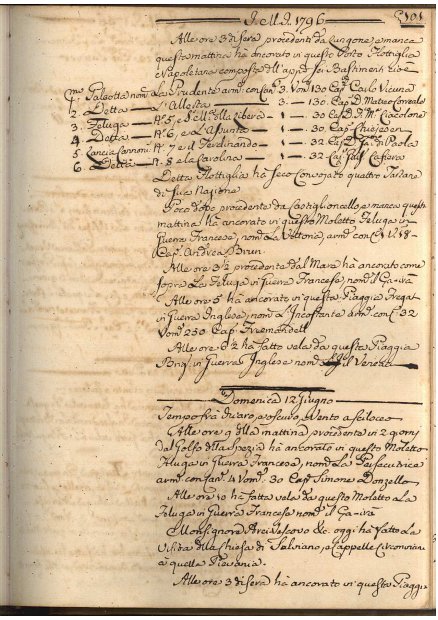 1796
101
Alle ore 3 di sera procedente da Longone, e manca
questa mattina hà ancorato in questo Porto Flottiglia
Napoletana composta dell'app.o sei Bastimenti Cioè
1. Galeotta nom. La Prudente arm. con Can. 3. Vom. 130 Cap.
2. Detta L'Allerta 3 130 Cap. D. Matteo
3. Feluga N. 5, e 1 30
4. Detta N. 6, e 1 30 Cap.
5. Lancia Cannoni N. 7 e il Ferdinando 1 32 Cap.
6. Detta N. 8 e la Carolina 1 32
Detta Flottiglia hà seco Convojato quattro Tartane
di Sua Nazione
Poco dopo procedente da Castiglioncello, e manca questa
mattina hà ancorato in questo Moletto Feluga in
Guerra Francese, nom. La Vittoria, arm.
Cap. Andrea Brun.
Alle ore 3 1/2 procedente dal Mare hà ancorato come
sopra La Feluga in Guerra Francese, nom. il Ga-irà
Alle ore 5 hà ancorato in questa Piaggia Fregat.
in Guerra Inglese, nom. L'Incostante arm. con C. 32
Vom. 250 Cap.
Alle ore 6 1/2 hà fatto vela da questa Piaggia
Brig. in Guerra Inglese nom. il
Domenica 12 Giugno
Tempo frà chiaro, e oscuro, Vento a Scilocco
Alle ore 9 della mattina procedente in 2 giorni
dal Golfo della Spezia hà ancorato in questo Moletto
Feluga in Guerra Francese, nom. La Persecutrice
arm. con Can. 4 Vom. 30 Cap. Simone Donzello
Alle ore 10 hà fatto vela da questo Moletto La
Feluga in Guerra Francese nom. il Ga-irà
Monsignore Arcivescovo &c. oggi hà fatto La
Visita della Chiesa di Salviano, a Cappelle
a quelle Pievania.
Alle ore 3 di sera hà ancorato in questa Piaggi